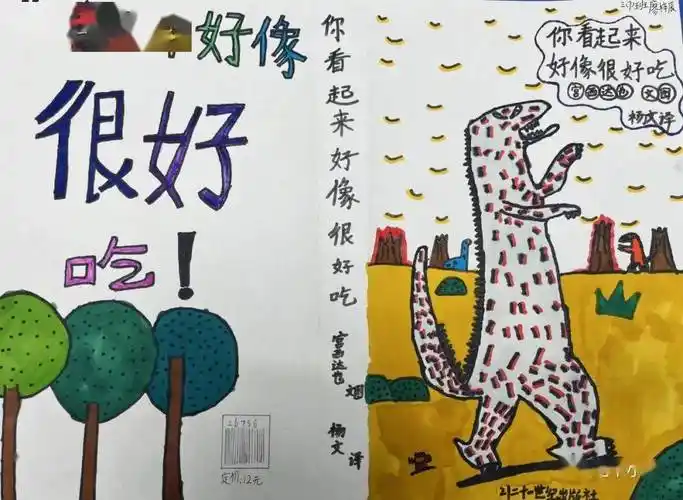 好像
很好
吃！
26756
定价:12元
你看起来好像很好吃
宫西达也 图
杨文 译
你看起来
好像很好吃
宫西达也 文图
杨文译
21二十一世纪出版社